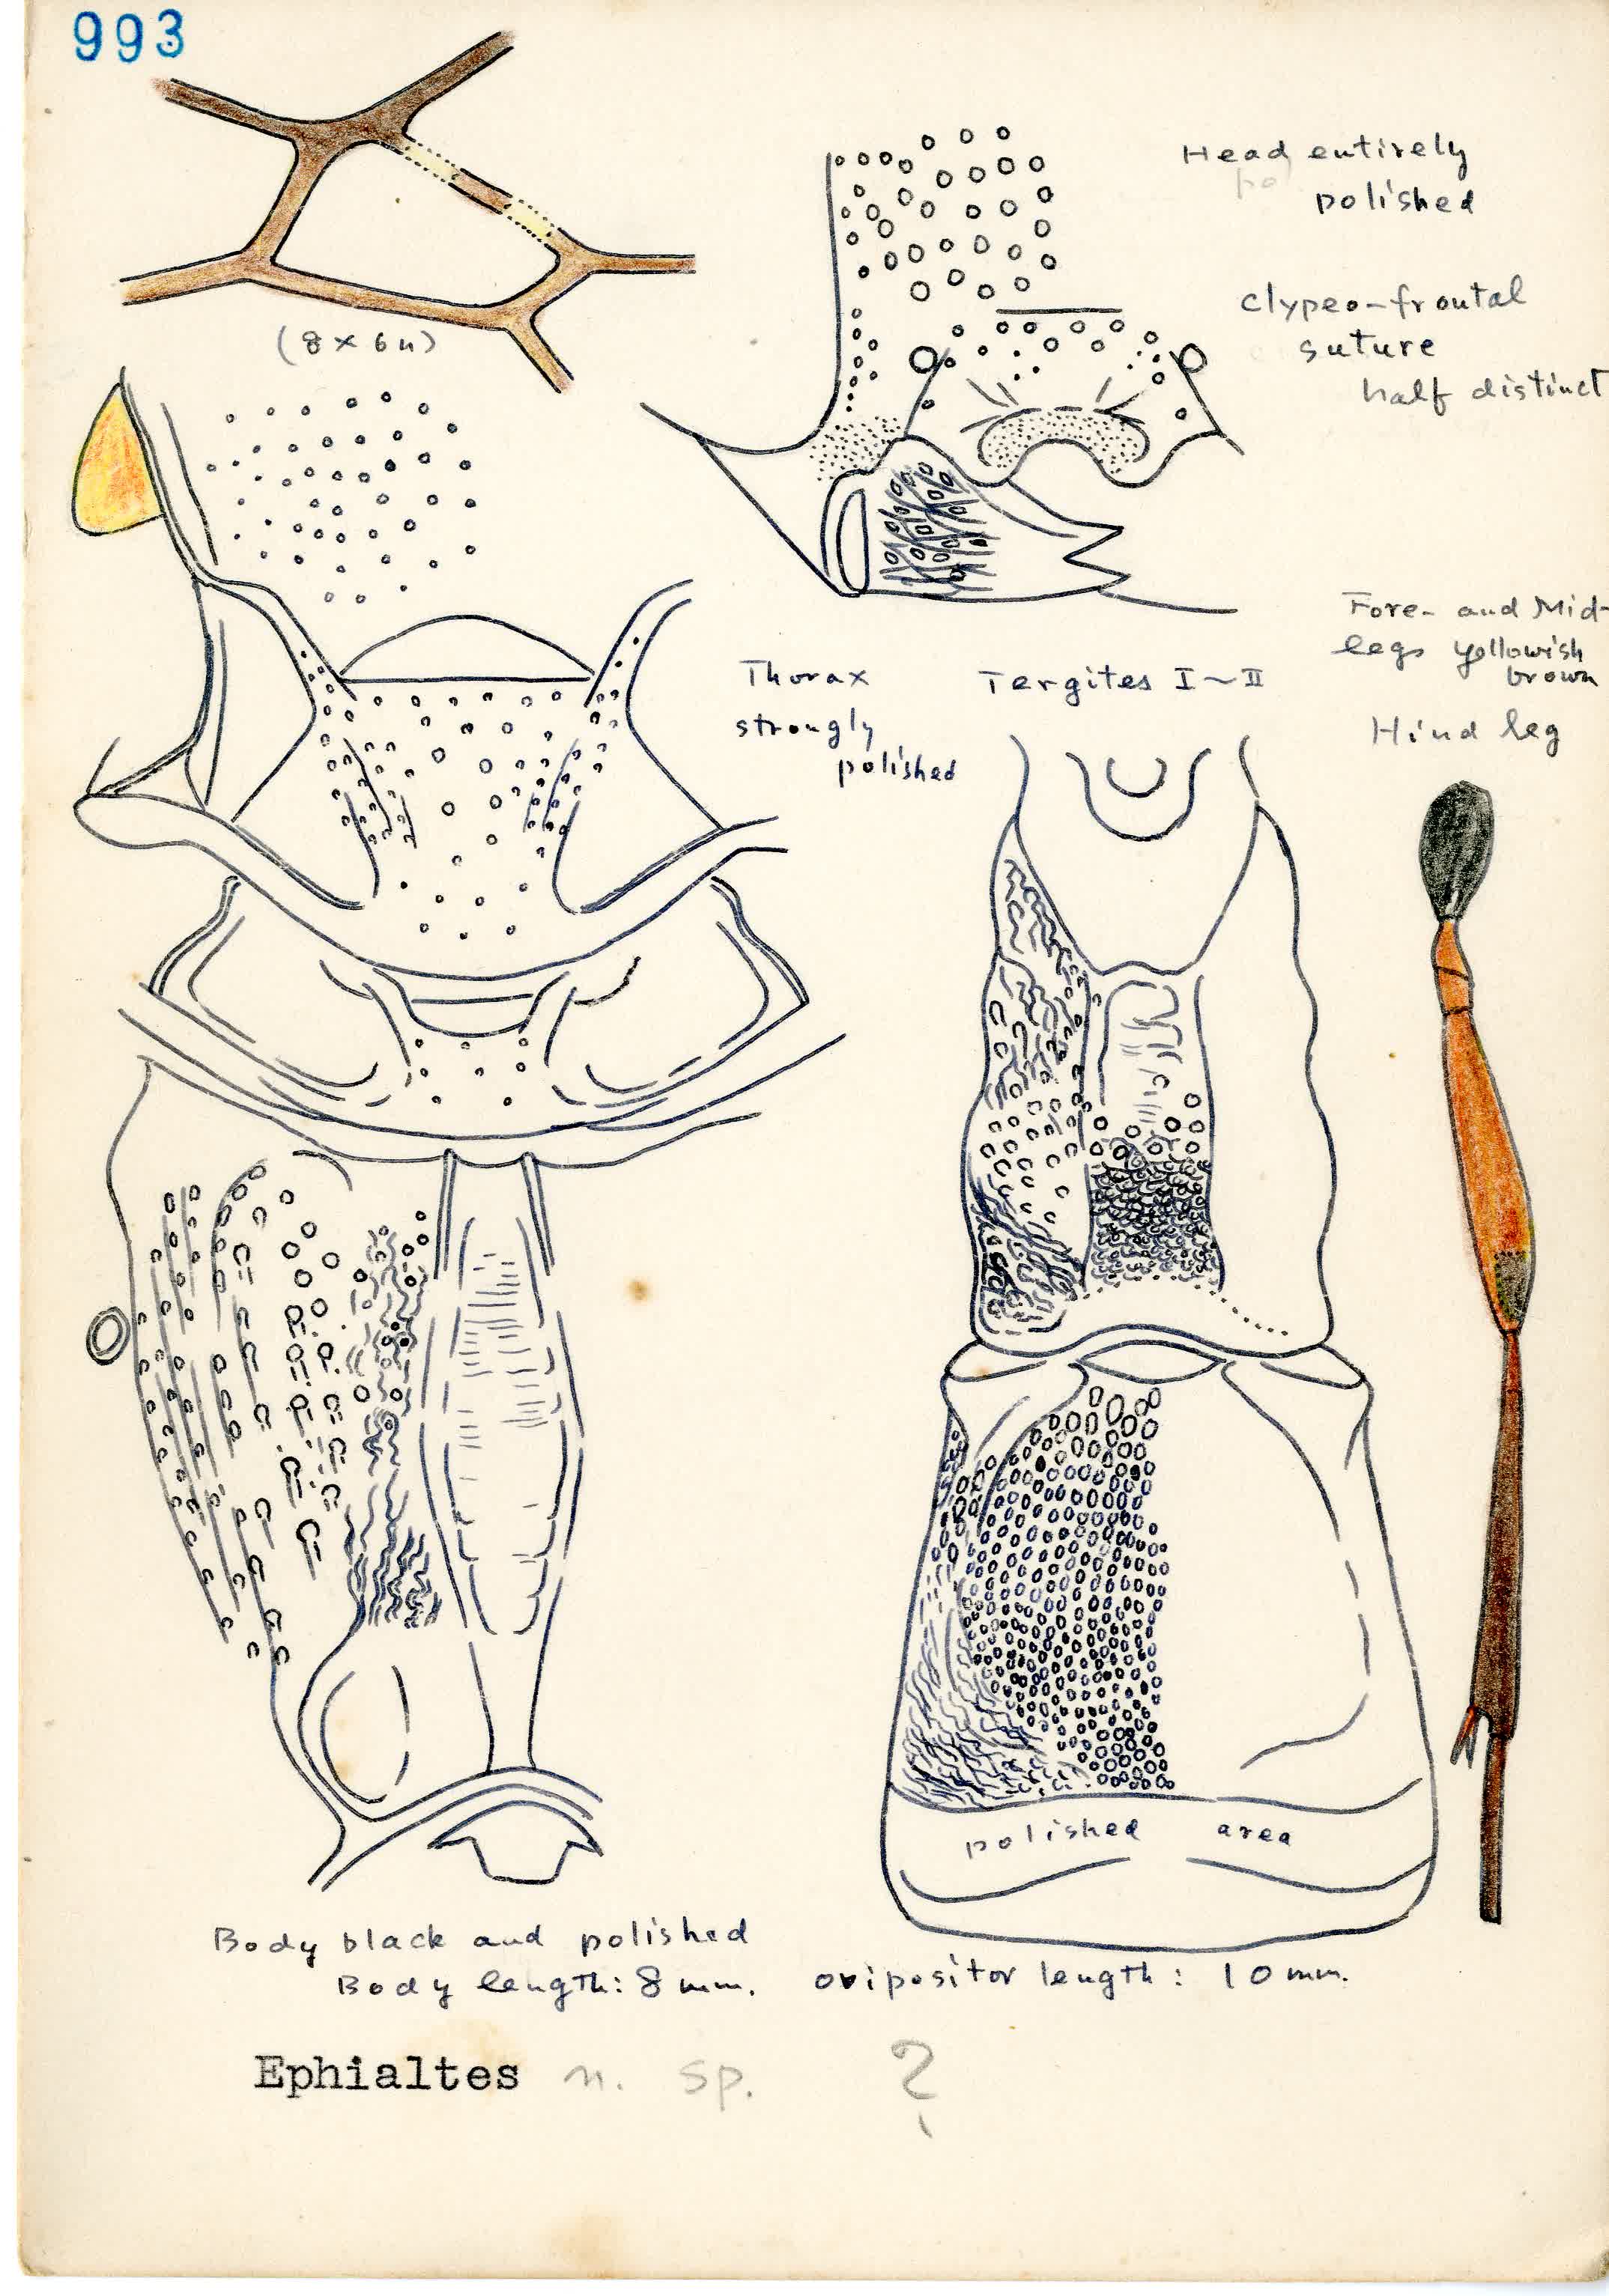 993
(8 × 6 u)
Head entirely
polished
clypeo-frontal
suture
half distinct
Fore- and Mid-
legs yellowish
brown
Thorax
strongly
polished
Tergites I~II
Hind leg
polished area
Body black and polished
Body length: 8 mm. ovipositor length: 10 mm.
Ephialtes n. sp. ?